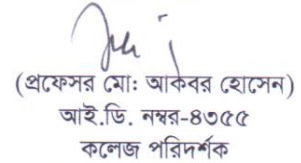 (প্রফেসর মো: আকবর হোসেন)
আই.ডি. নম্বর-৪৩৫৫
কলেজ পরিদর্শক